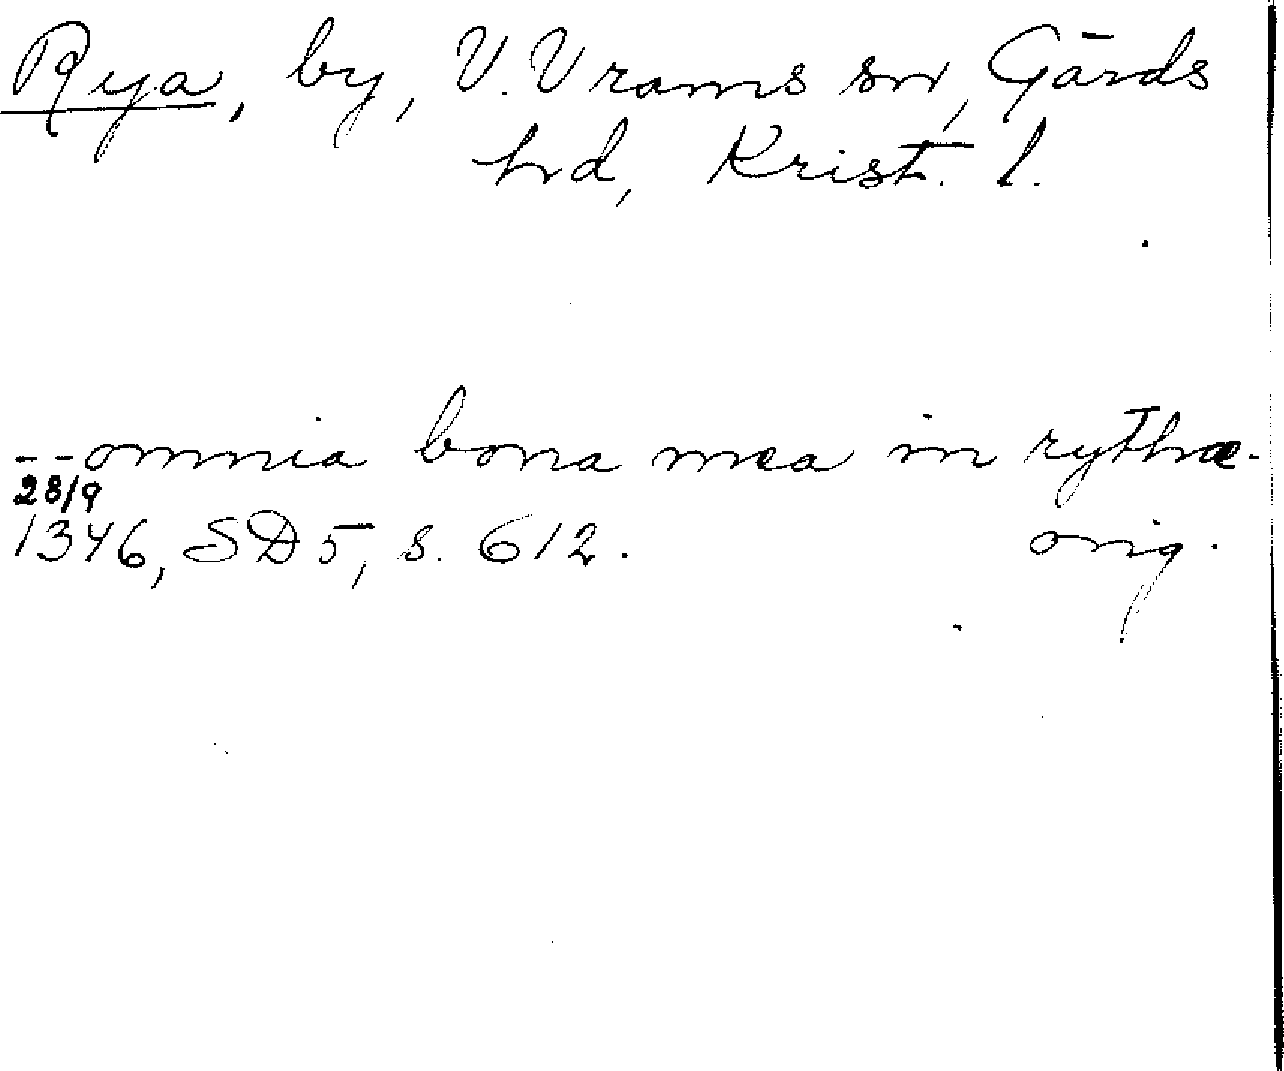 Rya, by, V. Vrams sn, Gärds
hd, Krist. l.
-- omnia bona mea in rythæ.
28/9
1346, SD 5, s. 612. orig.